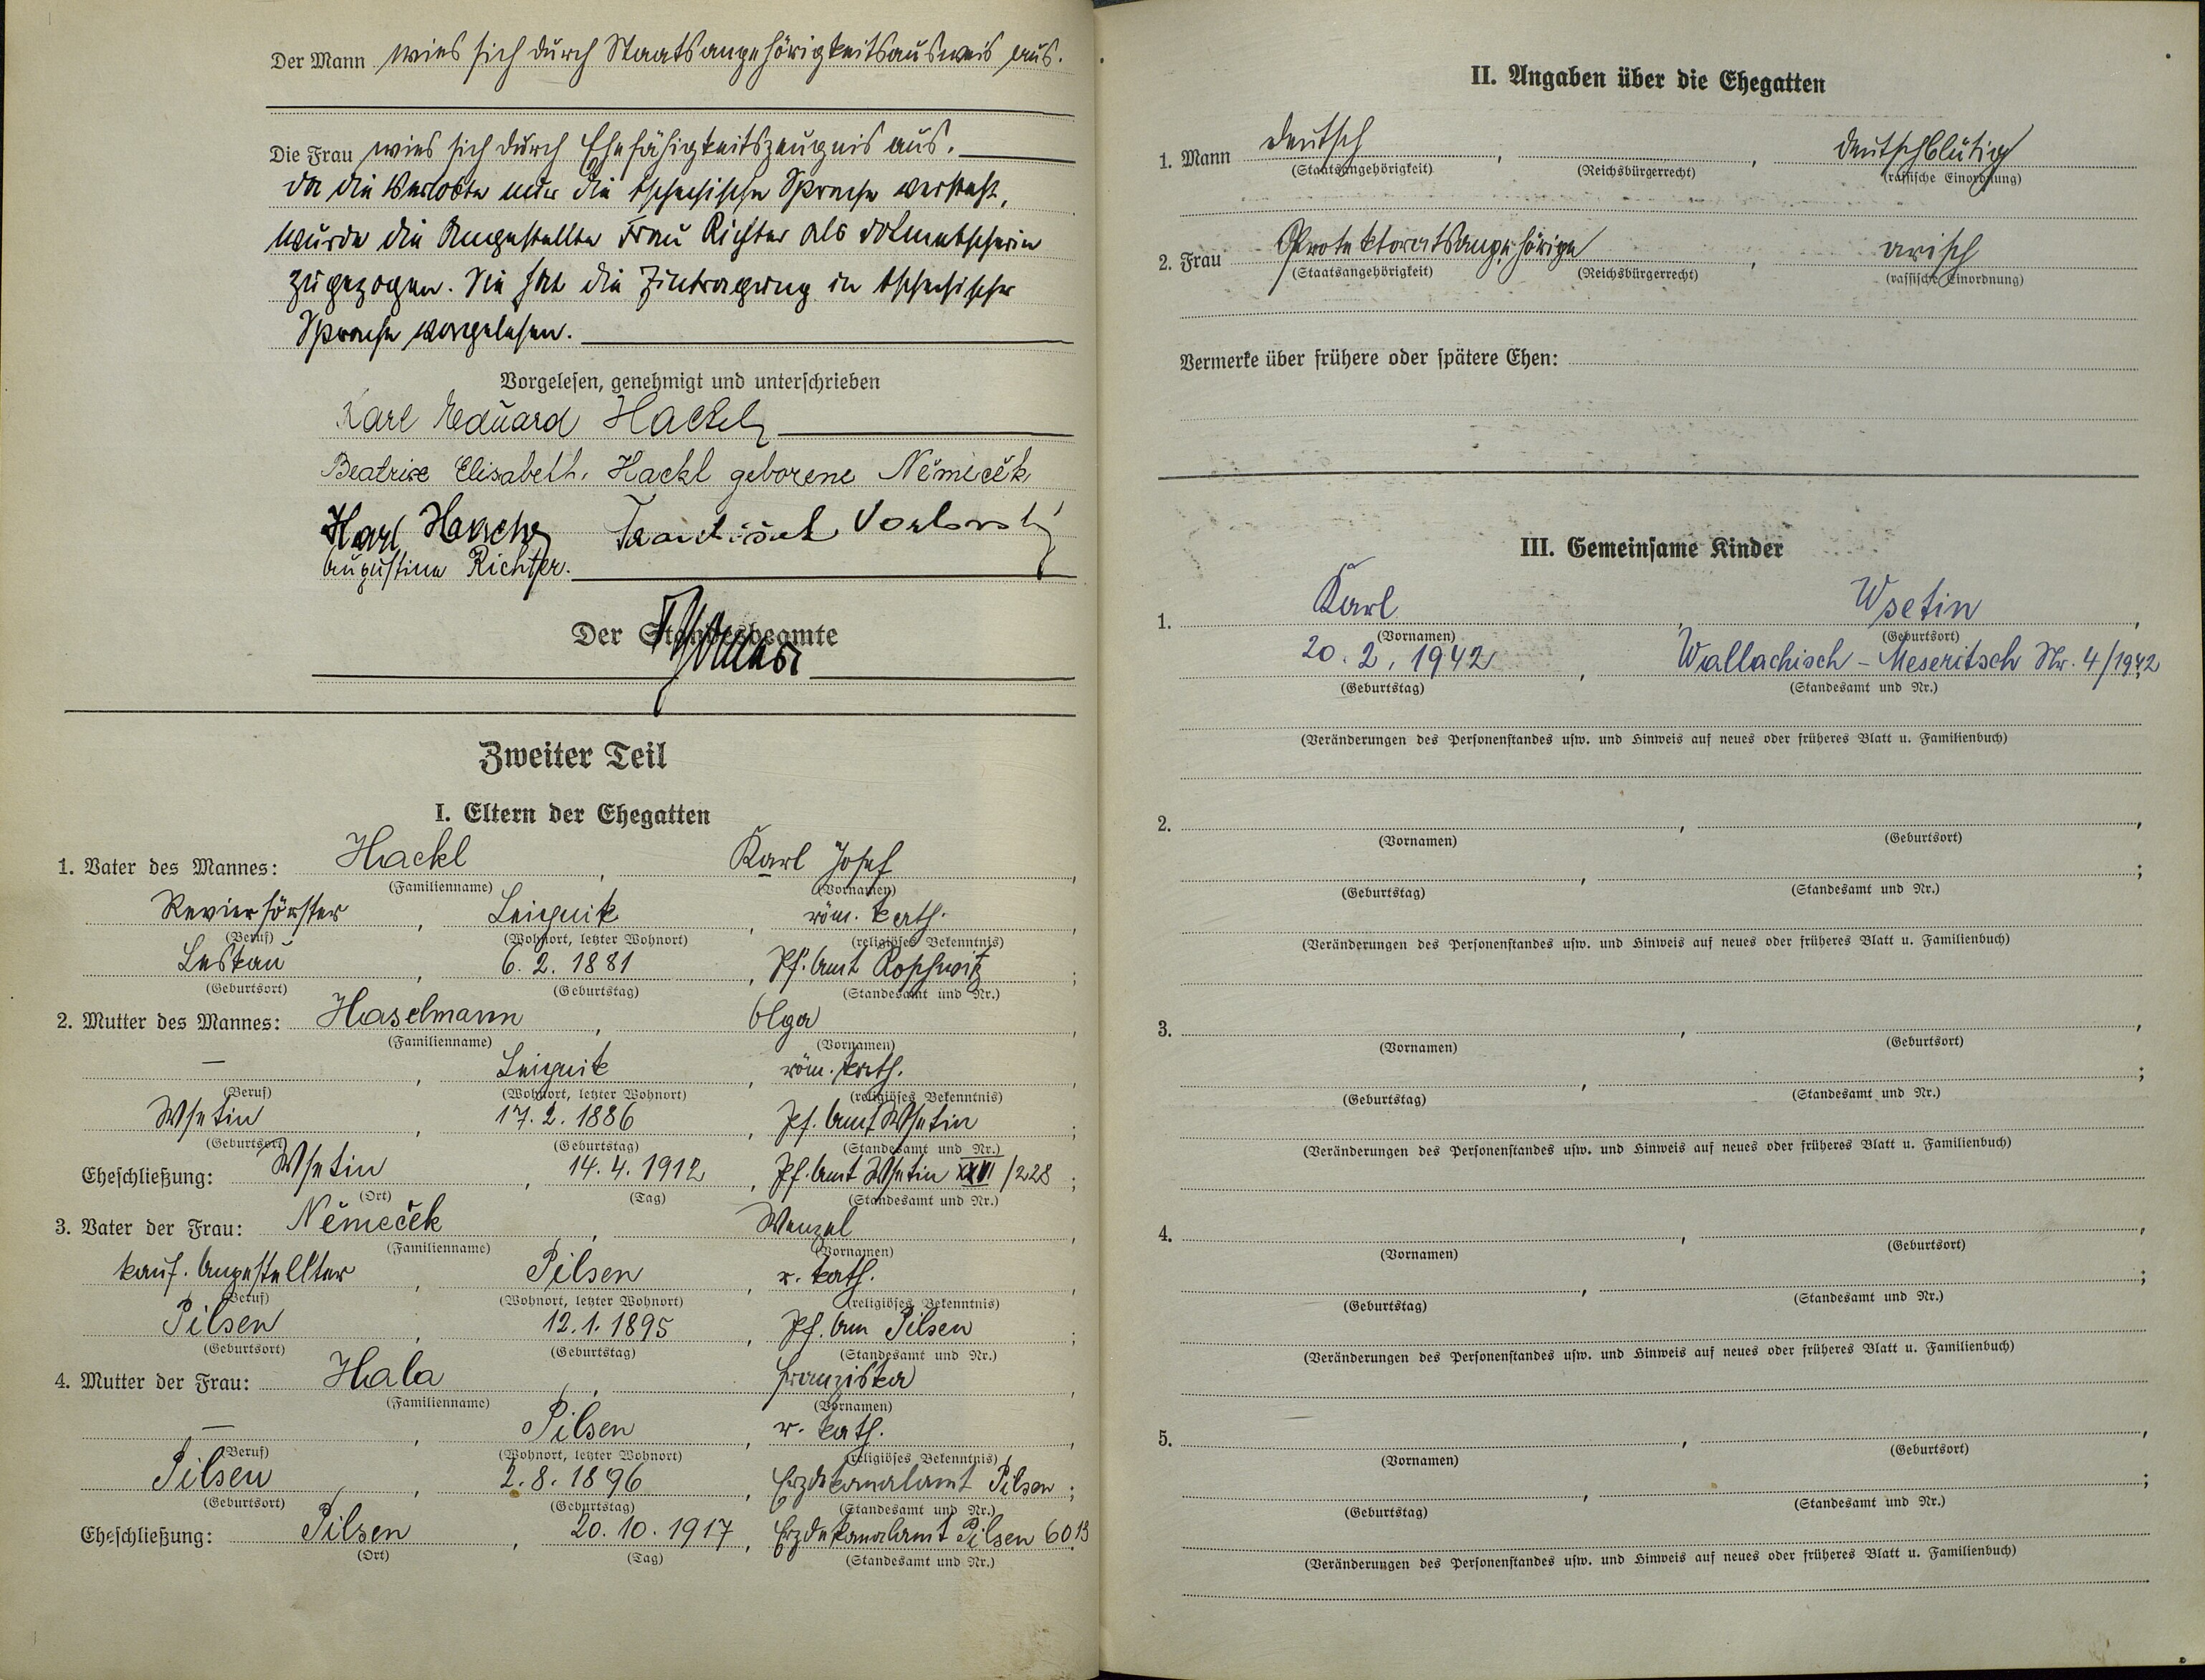 Der Mann wies sich durch Staatsangehörigkeitsausweis aus.
Die Frau wies sich durch Ehefähigkeitszeugnis aus.
Da die Verlobte nur die tschechische Sprache versteht,
wurde die Angestellte Frau Richter als Dolmetscherin
zugezogen. Sie hat die Eintragung in tschechischer
Sprache vorgelesen.
Vorgelesen, genehmigt und unterschrieben
Karl Eduard Hackl
Beatrix Elisabeth Hackl geborene Němeček
Karl
Augustine Richter.
Der Standesbeamte
Zweiter Teil
I. Eltern der Ehegatten
1. Vater des Mannes: Hackl, Karl Josef,
(Familienname) (Vornamen)
Revierförster, Leignik, röm. kath.,
(Beruf) (Wohnort, letzter Wohnort) (religiöses Bekenntnis)
Leskau, 6. 2. 1881, Pf. Amt Roschwitz;
(Geburtsort) (Geburtstag) (Standesamt und Nr.)
2. Mutter des Mannes: Haselmann, Olga,
(Familienname) (Vornamen)
—, Leignik, röm. kath.,
(Beruf) (Wohnort, letzter Wohnort) (religiöses Bekenntnis)
Wsetin, 17. 2. 1886, Pf. Amt Wsetin;
(Geburtsort) (Geburtstag) (Standesamt und Nr.)
Eheschließung: Wsetin, 14. 4. 1912, Pf. Amt Wsetin /228;
(Ort) (Tag) (Standesamt und Nr.)
3. Vater der Frau: Němeček, Wenzel,
(Familienname) (Vornamen)
kauf. Angestellter, Pilsen, r. kath.,
(Beruf) (Wohnort, letzter Wohnort) (religiöses Bekenntnis)
Pilsen, 12. 1. 1895, Pf. Am Pilsen;
(Geburtsort) (Geburtstag) (Standesamt und Nr.)
4. Mutter der Frau: Hala, Franziska,
(Familienname) (Vornamen)
—, Pilsen, r. kath.,
(Beruf) (Wohnort, letzter Wohnort) (religiöses Bekenntnis)
Pilsen, 2. 8. 1896, Erzdekanalamt Pilsen;
(Geburtsort) (Geburtstag) (Standesamt und Nr.)
Eheschließung: Pilsen, 20. 10. 1917, Erzdekanalamt Pilsen 60.13
(Ort) (Tag) (Standesamt und Nr.)
II. Angaben über die Ehegatten
1. Mann deutsch, , deutschblütig
(Staatsangehörigkeit) (Reichsbürgerrecht) (rassische Einordnung)
2. Frau Protektoratsangehörige, arisch
(Staatsangehörigkeit) (Reichsbürgerrecht) (rassische Einordnung)
Vermerke über frühere oder spätere Ehen:
III. Gemeinsame Kinder
1. Karl, Wsetin,
(Vornamen) (Geburtsort)
20. 2. 1942, Wallachisch-Meseritsch Nr. 4/1942;
(Geburtstag) (Standesamt und Nr.)
(Veränderungen des Personenstandes usw. und Hinweis auf neues oder früheres Blatt u. Familienbuch)
2. , ,
(Vornamen) (Geburtsort)
, ;
(Geburtstag) (Standesamt und Nr.)
(Veränderungen des Personenstandes usw. und Hinweis auf neues oder früheres Blatt u. Familienbuch)
3. , ,
(Vornamen) (Geburtsort)
, ;
(Geburtstag) (Standesamt und Nr.)
(Veränderungen des Personenstandes usw. und Hinweis auf neues oder früheres Blatt u. Familienbuch)
4. , ,
(Vornamen) (Geburtsort)
, ;
(Geburtstag) (Standesamt und Nr.)
(Veränderungen des Personenstandes usw. und Hinweis auf neues oder früheres Blatt u. Familienbuch)
5. , ,
(Vornamen) (Geburtsort)
, ;
(Geburtstag) (Standesamt und Nr.)
(Veränderungen des Personenstandes usw. und Hinweis auf neues oder früheres Blatt u. Familienbuch)